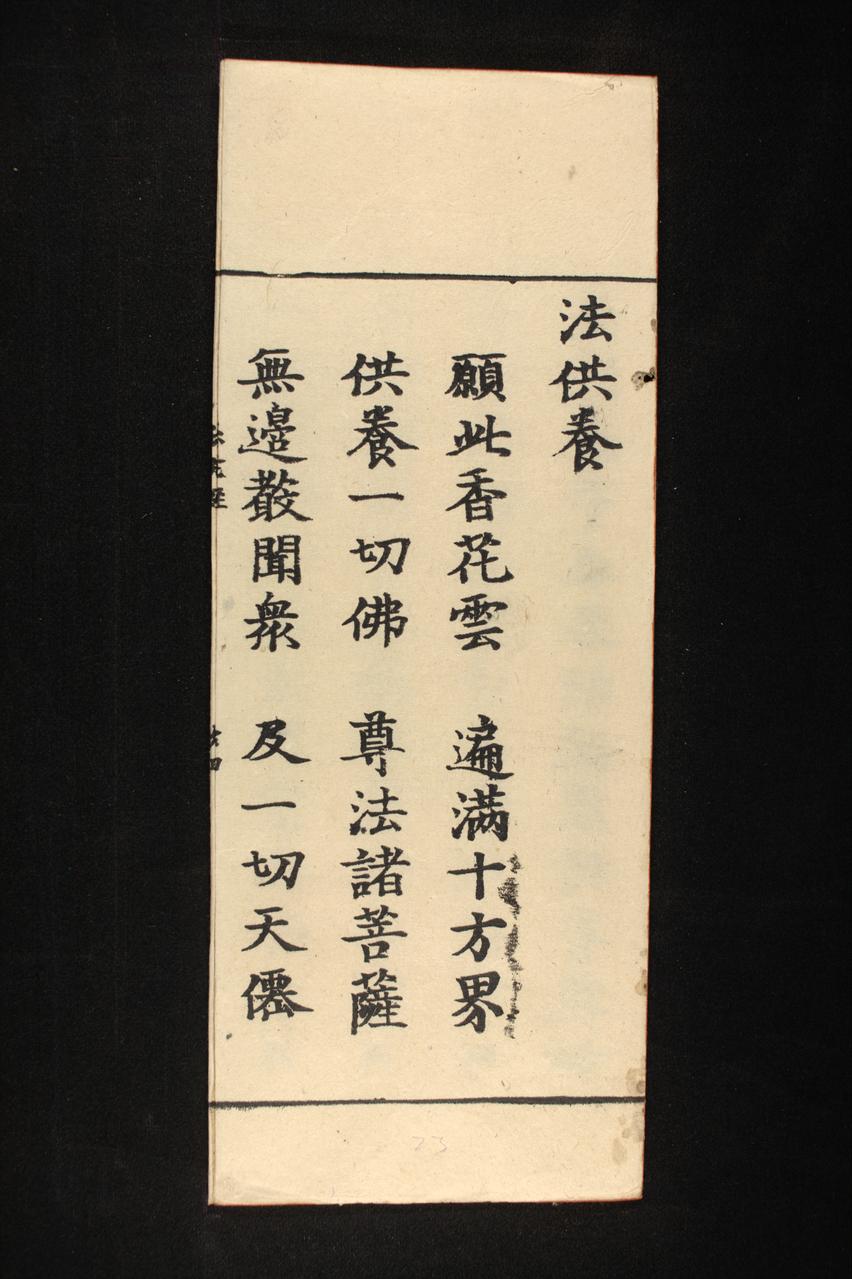 法供養
願此香花雲　遍滿十方界
供養一切佛　尊法諸菩薩
無邊聲聞衆　及一切天僊
23